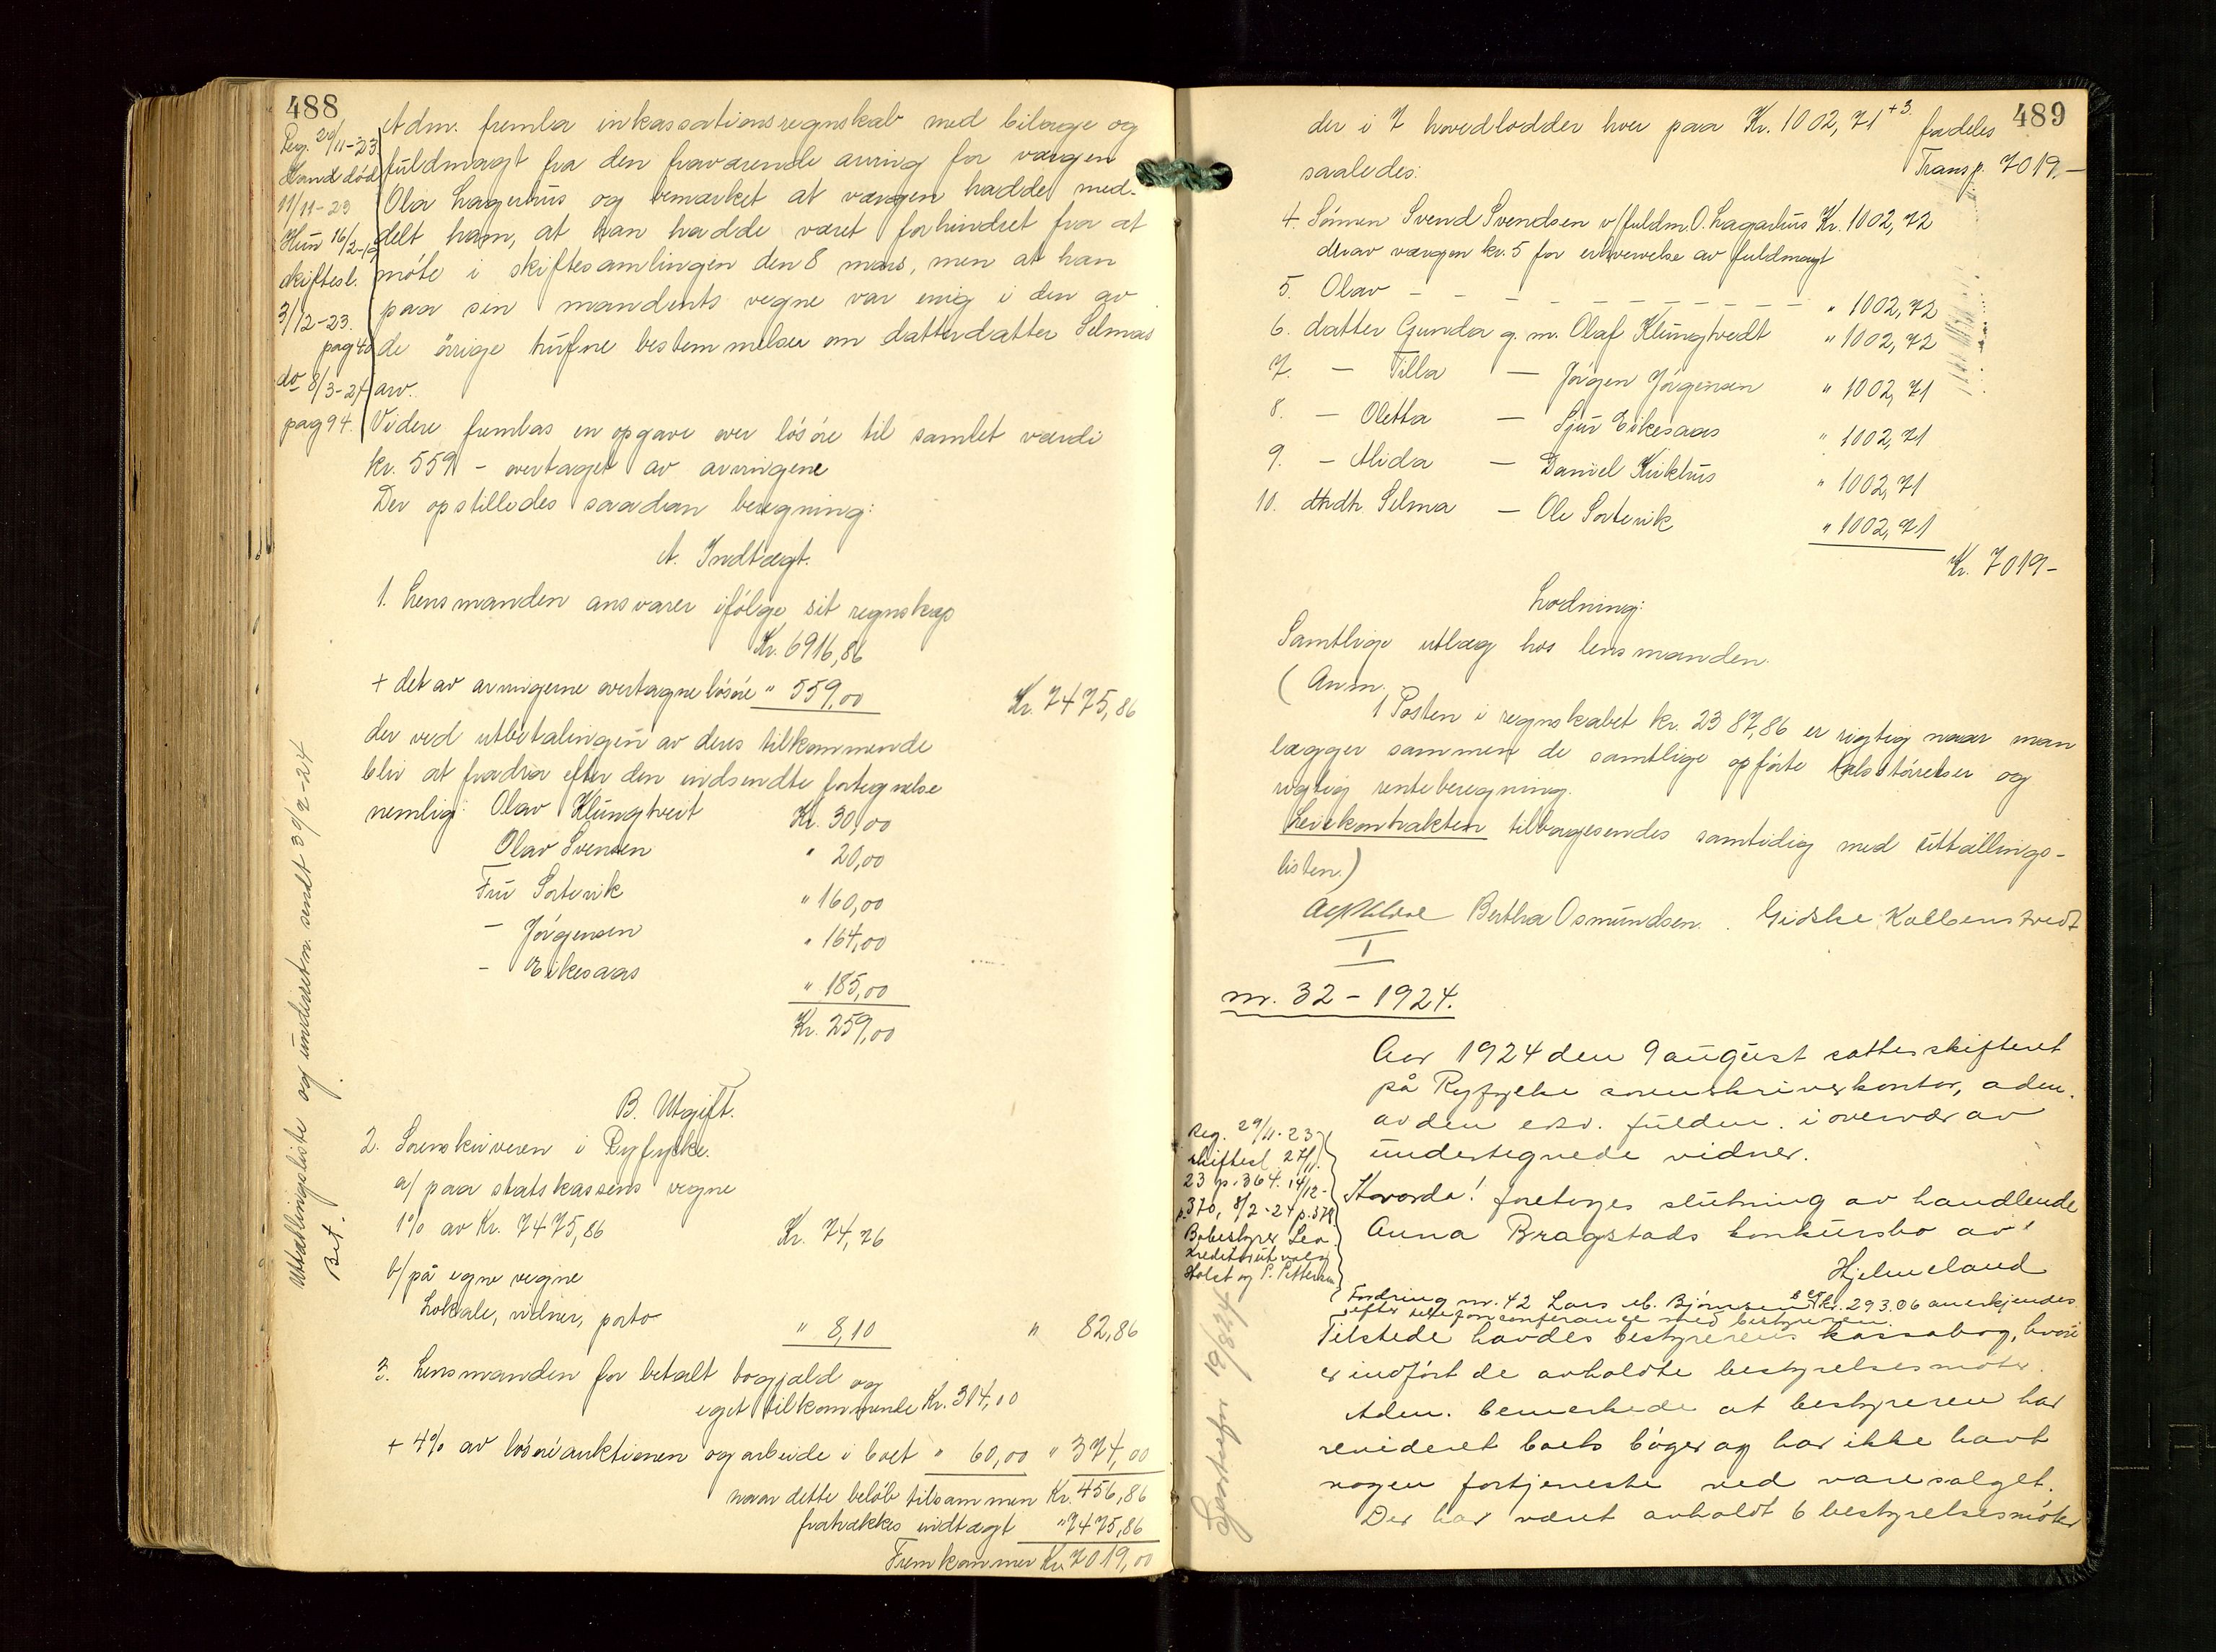 488
Reg. 20/11-23
Mand død
11/11-23
Hun 16/2-19
skiftesl.
3/12-23.
pag 40
do 8/3-24
pag 94.
Adm. fremla inkassationsregnskab med bilage og
fuldmagt fra den fraværende arving for værgen
Ola Lagerhus og bemærket at værgen hadde med-
delt ham, at han hadde været forhindret fra at
møte i skiftesamlingen den 8 mars, men at han
paa sin mandents vegne var enig i den av
de øvrige trufne bestemmelser om datterdatter Selmas
arv.
Videre fremlas en opgave over løsøre til samlet værdi
kr. 559 - overtaget av arvingene
Der opstilledes saadan beregning:
A. Indtægt.
1. Lensmanden ansvarer ifølge sit regnskap
Kr. 6916,86
+ det av arvingerne overtagne løsøre " 559,00 Kr. 7475,86
der ved utbetalingen av deres tilkommende
blir at fradra efter den indsendte fortegnelse
nemlig: Olav Klungtveit Kr. 30,00
Olav Svensen " 20,00
Fru Sortevik " 160,00
- Jørgensen " 164,00
- Eikesaas " 185,00
Kr. 259,00
B. Utgift.
2. Sorenskriveren i Ryfylke.
a/ paa statskassens vegne
1% av Kr. 7475,86 Kr. 74,76
b/ på egne vegne
Lokale, vidner, porto " 8,10 " 82,86
3. Lensmanden for betalt bogjæld og
eget tilkommende Kr. 314,00
+ 4% av løsøreauktionen og arbeide i boet " 60,00 " 374,00
naar dette beløb tilsammen Kr. 456,86
fratrækkes indtægt " 7475,86
Fremkommer Kr. 7019,00
Uttallingsliste og underretn. sendt 30/9-24
Bet.
489
der i 7 hovedlodder hver paa Kr. 1002,71 +3 fordeles
saaledes: Transp. 7019.-
4. Sønnen Svend Svendsen v/fuldm. O. Lagerhus Kr. 1002,72
derav værgen kr. 5 for erhvervelse av fuldmagt
5. Olav - - - - - - - - - - " 1002,72
6. datter Gunda g. m. Olaf Klungtvedt " 1002,72
7. - Tilla - Jørgen Jørgensen " 1002,71
8. - Oletta - Sjur Eikesaas " 1002,71
9. - Alida - Daniel Kirkhus " 1002,71
10. dtrdtr. Selma - Ole Sortevik " 1002,71
Kr. 7019-
Lodning:
Samtlige utlæg hos lensmanden.
(Anm.
1 Posten i regnskabet kr. 2387,86 er rigtig naar man
lægger sammen de samtlige opførte talstørrelser og
rigtig renteberegning.
Leiekontrakten tilbagesendes samtidig med uttallings-
listen.)
Bertha Osmundsen. Gidske Kolbenstvedt
I
nr. 32 - 1924.
Aar 1924 den 9 august sattes skifteret
på Ryfylke sorenskriverkontor, adm.
av den edsv. fuldm. i overvær av
undertegnede vidner.
Reg. 29/11-23
skiftesl. 27/11.
23 p. 364. 14/12-
p. 370, 8/2-24 p. 379.
Bobestyrer Lea.
Kreditorutvalg
Holst og P. Pettersen
Hvorda! foretoges slutning av handlende
Anna Bragstads konkursbo av
Hjelmeland
Fordring nr. 42 Lars M. Bjørnsen Bet kr. 293.06 anerkjendes
efter telefonconferance med bestyreren.
Tilstede havdes bestyrerens kassabog, hvori
er indført de avholdte bestyrelsesmøter.
Adm. bemerkede at bestyreren har
revideret boets bøger og har ikke havt
nogen fortjeneste ved varesalget.
Der har været avholdt 6 bestyrelsesmøter